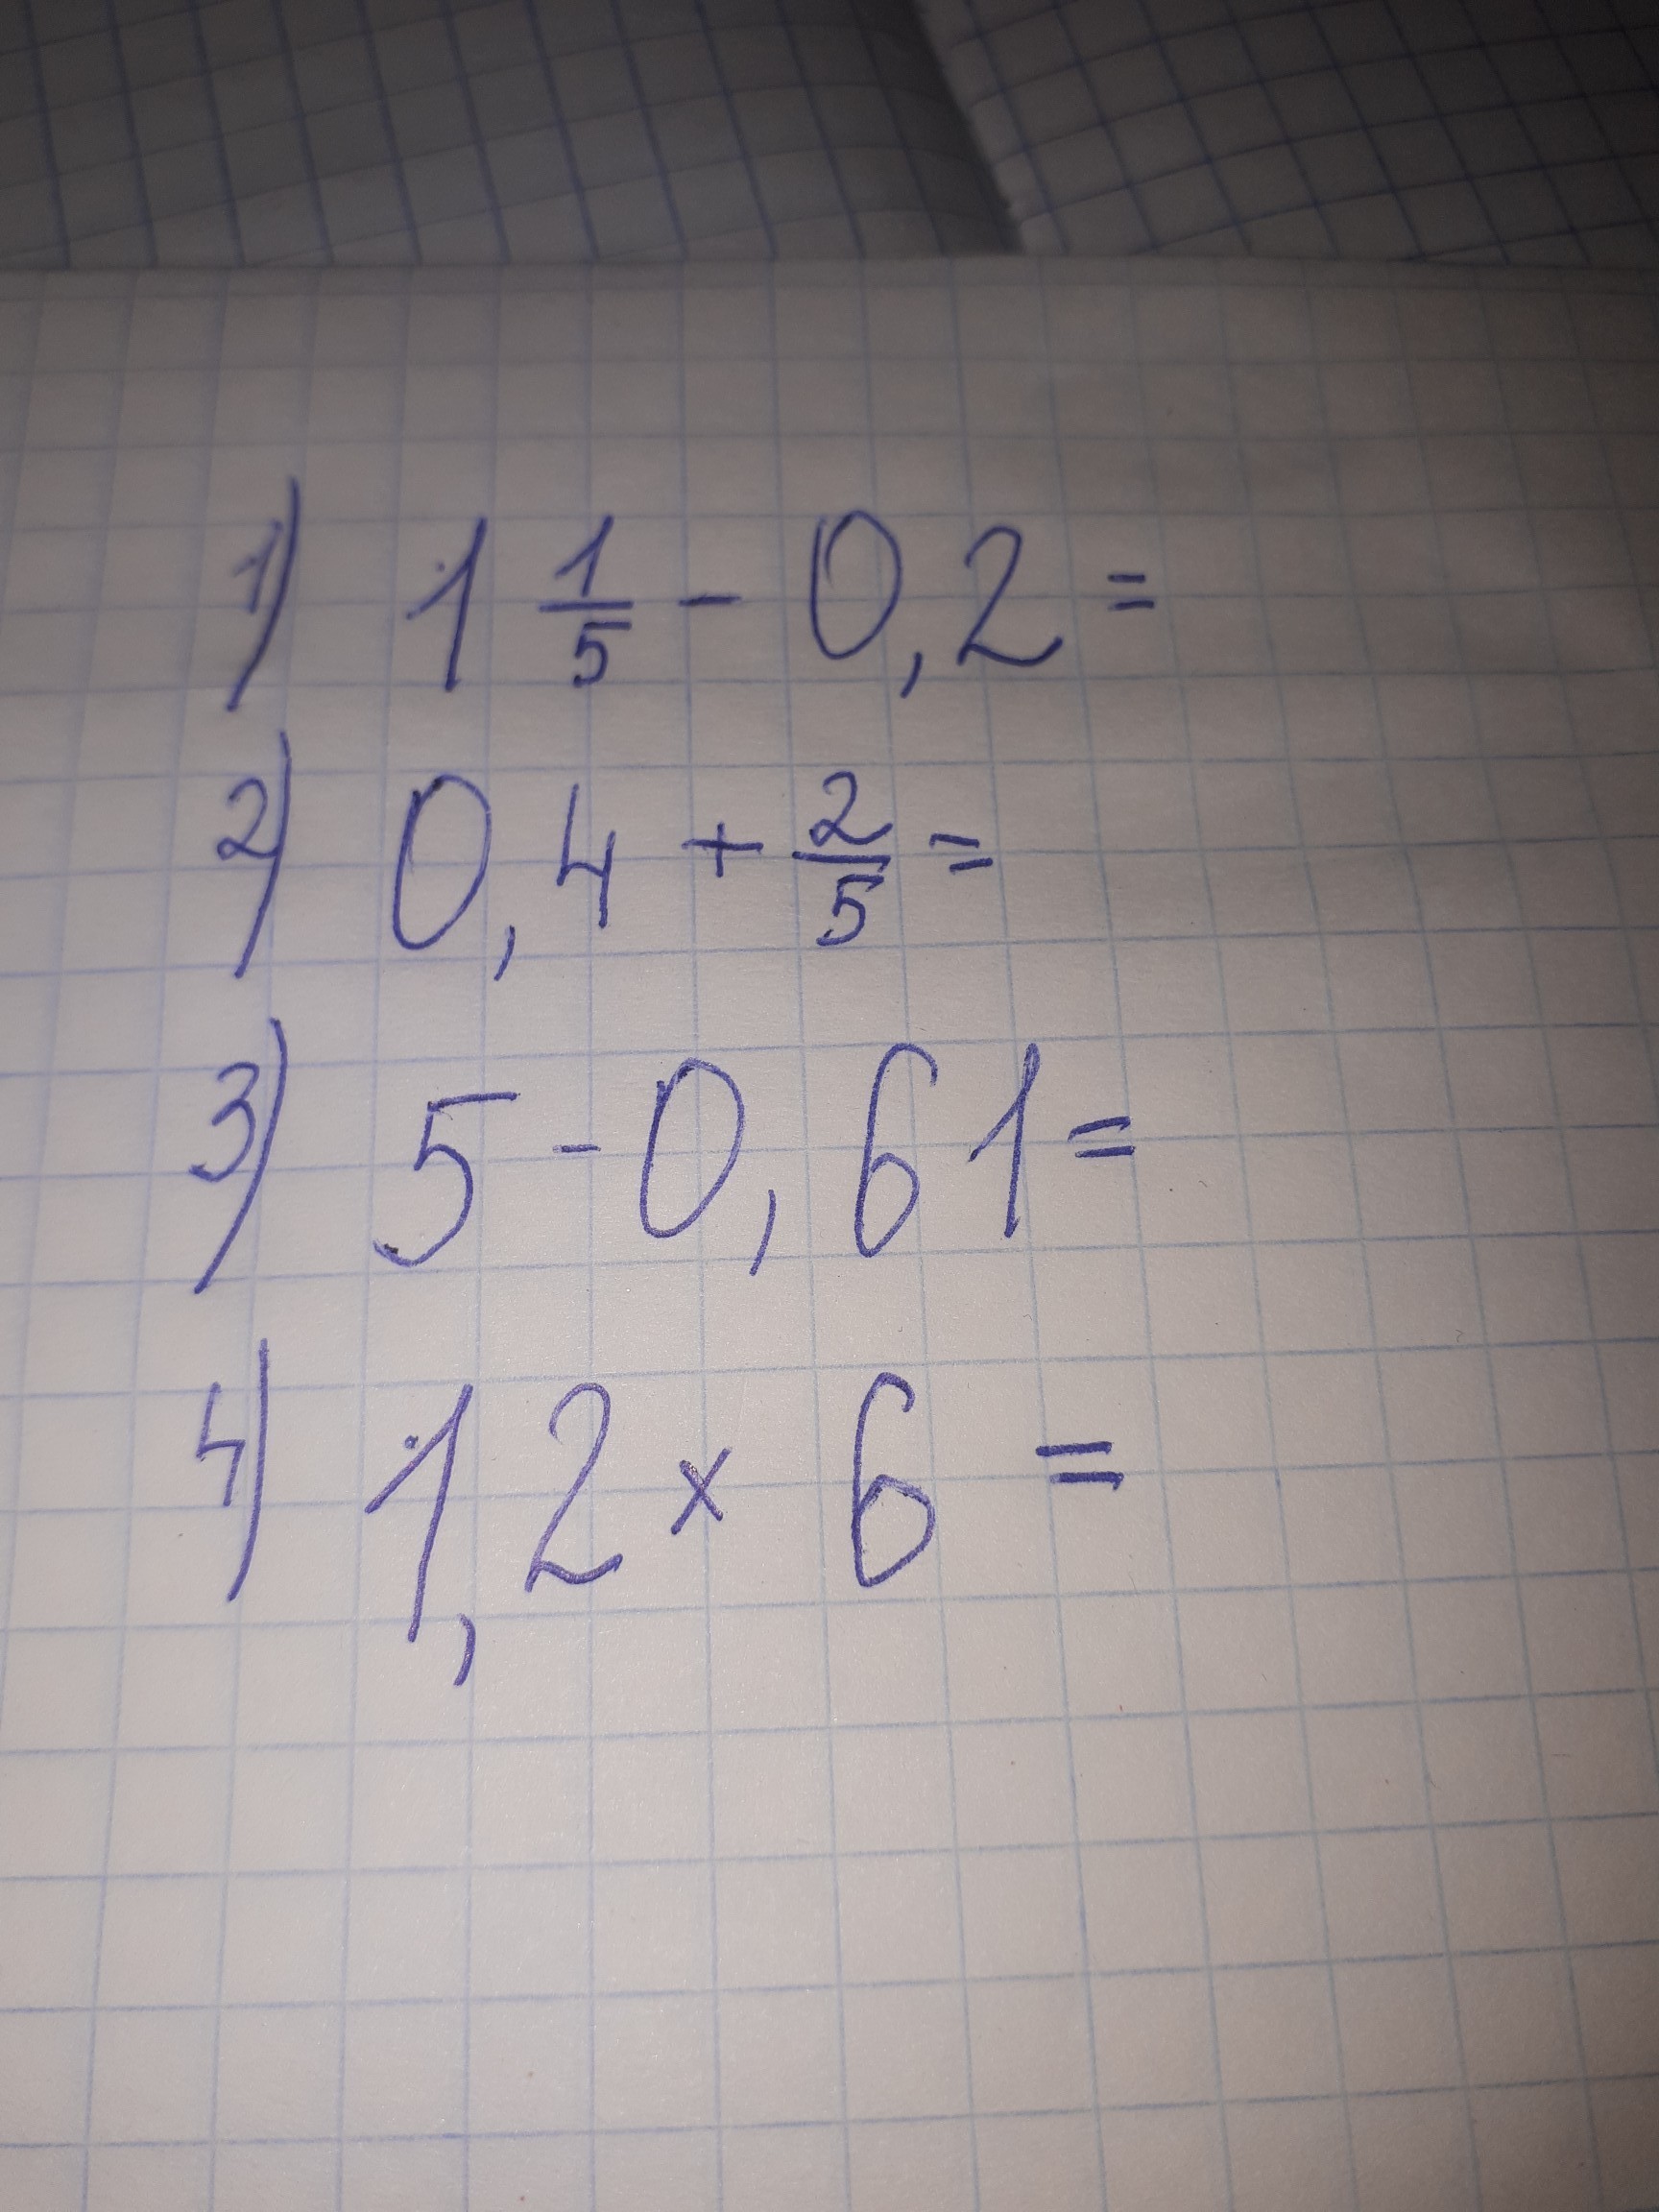 1) 1 1/5 - 0,2 =
2) 0,4 + 2/5 =
3) 5 - 0,61 =
4) 1,2 × 6 =